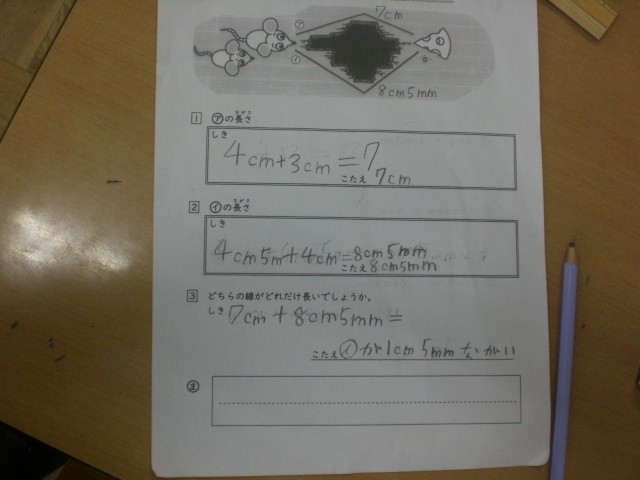 7cm
ア
イ
8cm5mm
1 アの長さ
ながさ
しき
4cm+3cm=7
こたえ 7cm
2 イの長さ
ながさ
しき
4cm5m+4cm=8cm5mm
こたえ 8cm5mm
3 どちらの線がどれだけ長いでしょうか。
しき 7cm+8cm5mm=
こたえ イが1cm5mmながい